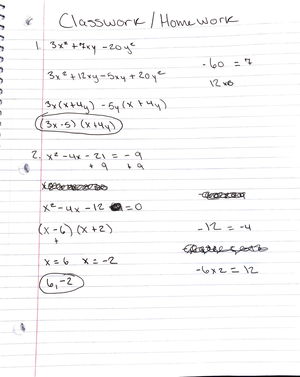 Classwork / Homework
1. 3x² + 7xy - 20y²
-60 = 7
3x² + 12xy - 5xy + 20y²
12x5
3x(x+4y) - 5y(x+4y)
(3x-5)(x+4y)
2. x² - 4x - 21 = -9
+9 +9
x² - 4x - 12 = 0
(x-6)(x+2)
-12 = -4
+
x = 6 x = -2
-6x2 = 12
6, -2